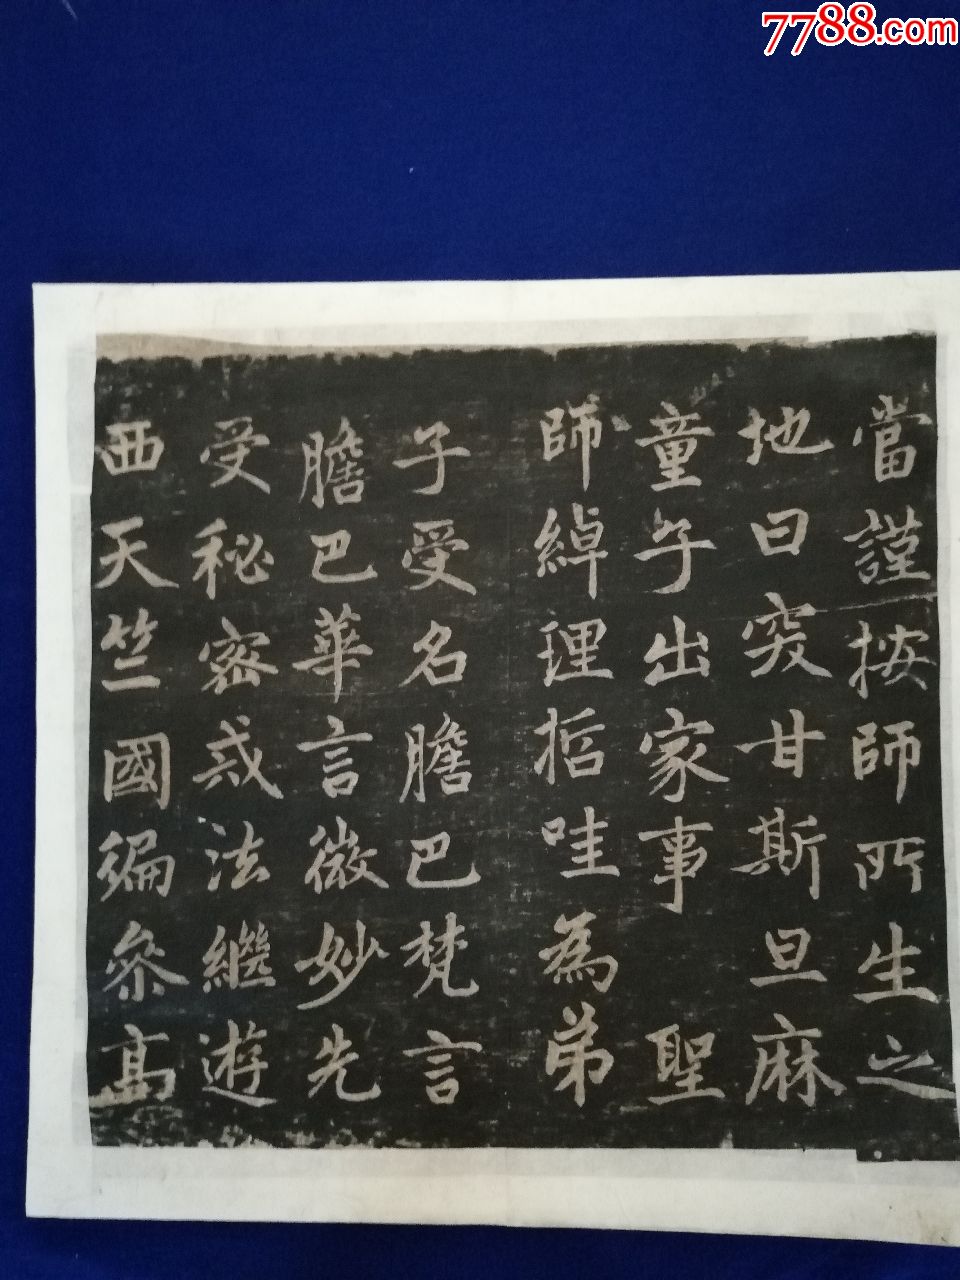 7788.com
當謹按師所生之
地曰突甘斯旦麻
童子出家事 聖
師綽理哲哇為弟
子受名膽巴梵言
膽巴華言微妙先
受秘密戒法繼遊
西天竺國徧參高